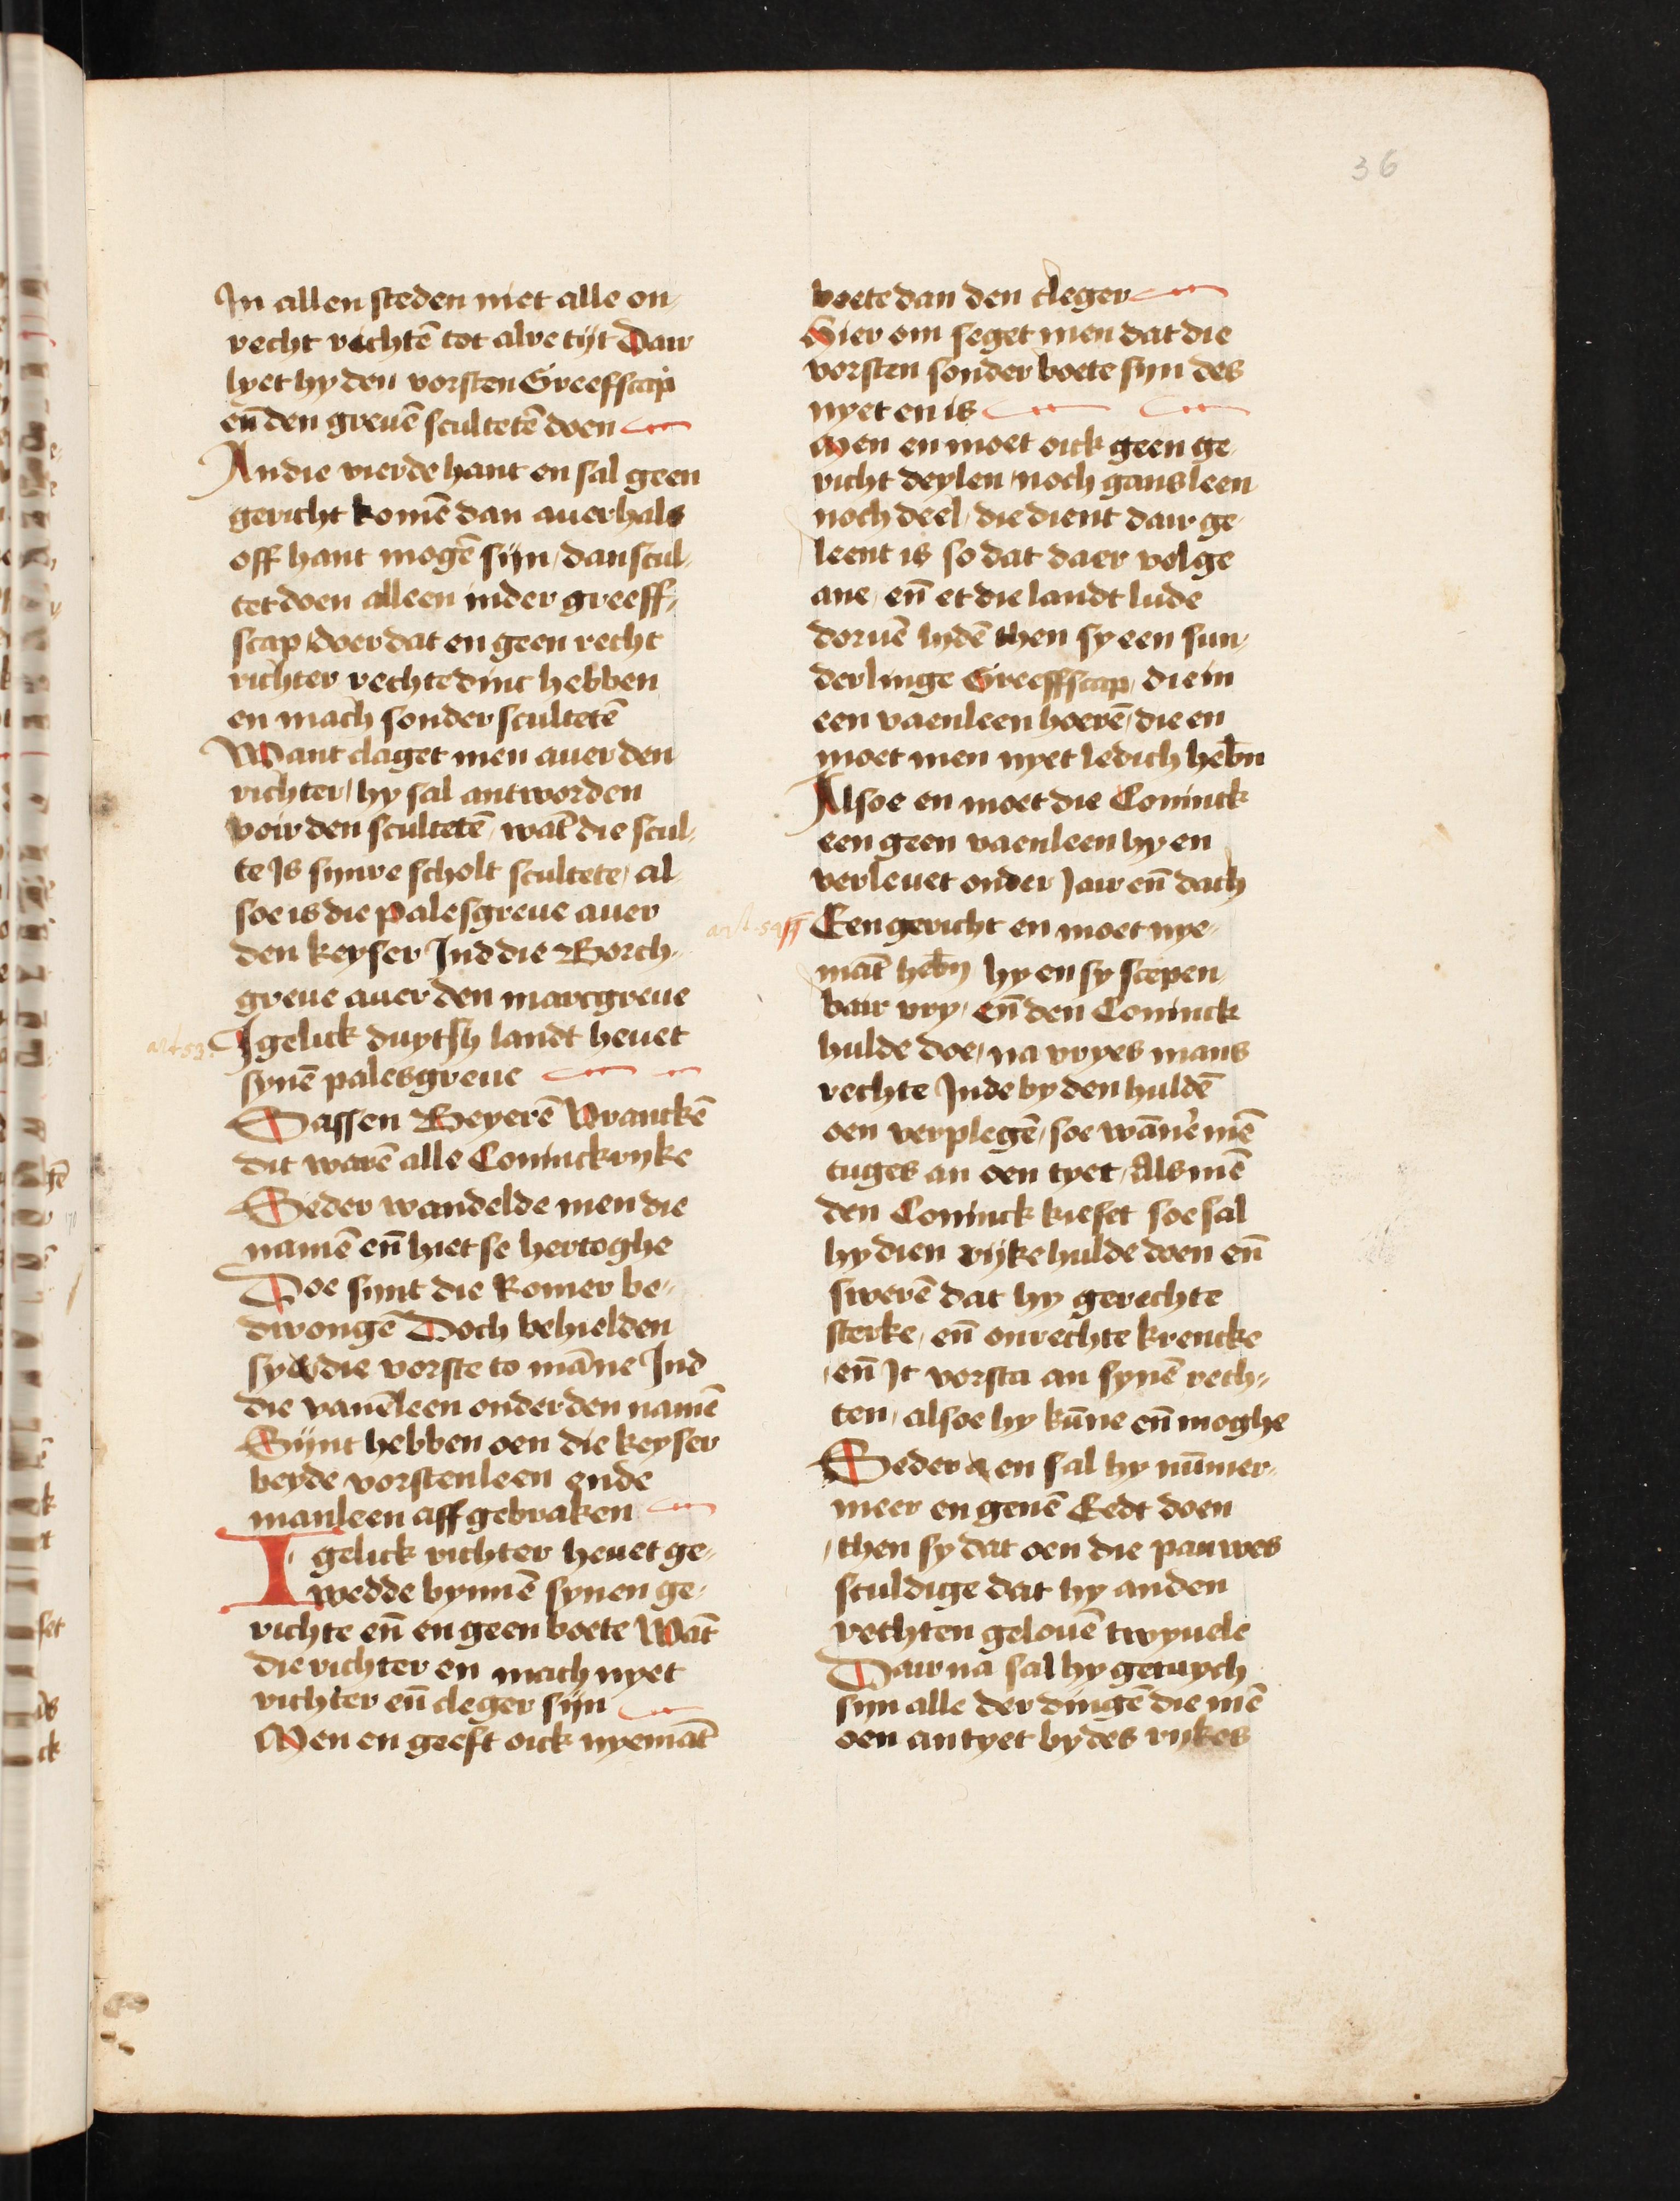 36
In allen steden niet alle on-
recht richtē tot alre tijt Dair
lyet hy den vorsten Greefscap
eñ den greuē scultetē doen
An die vierde hant en sal geen
gericht komē dan auer hals
off hant mogē sijn / dan scul-
tet doen alleen inder greeff-
scap / doer dat en geen recht
richter rechte dinc hebben
en mach sonder scultetē
Want claget men auer den
richter / hy sal antworden
voir den scultetē / wāt die scul-
te Is sijnre scholt scultete / al-
soe is die palesgreue auer
den keyser Ind die Borch-
greue auer den marcgreue
art 53
Igelick duytsh landt heuet
synē palesgreue
Sassen Beyerē Vranckē
dit warē alle Coninckrijke
Seder wandelde men die
namē eñ hiet se hertoghe
Doe sint die Romer be-
dwongē Doch behielden
sy die vorste to māne Ind
die vanēleen onder den namē
Sijnt hebben oen die keyser
beyde vorstenleen ende
manleen aff gebraken
Igelick richter heuet ge-
wedde bynnē synen ge-
richte eñ en geen boete Wāt
die richter en mach nyet
richter eñ cleger sijn
Men en geeft oick nyemāt
boete dan den cleger
Hier om seget men dat die
vorsten sonder boete sijn des
nyet en is
Men en moet oick geen ge-
richt deylen / noch gans leen
noch deel / die dient dair ge-
leent is so dat daer volge
ane / eñ et die landt lude
doruē lydē then sy een sun-
derlinge Greeffscap / die in
een vaenleen hoerē / die en
moet men nyet ledich hebn
Alsoe en moet die Coninck
een geen vaenleen hy en
verleuet onder Jair eñ dach
art 54
Een gericht en moet nye-
māt hebn hy en sy scepen
bair vry / eñ den Coninck
hulde doe / na vryes mans
rechte Inde by den huldē
oen verplegē / soe wānēr mē
tuges an oen tyet / Als mē
den Coninck kieset soe sal
hy dien rijke hulde doen eñ
swerē dat hy gerechte
sterke / eñ onrechte krencke
/ eñ It vorsta an synē rech-
ten / alsoe hy kūne eñ moghe
Seder en sal hy nūmer-
meer en genē Eedt doen
/ then sy dat oen die pauwes
sculdige dat hy anden
rechten gelouē twyuele
Dair na sal hy getuych
sijn alle der dingē die mē
oen antyet by des rijkes